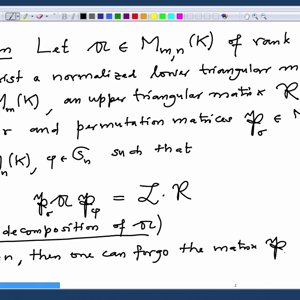 Let 𝔄 ∈ M_{m,n}(K) of rank
exist a normalized lower triangular m
M_m(K), an upper triangular matrix R
r and permutation matrices 𝔓_σ ∈ M
M_n(K), φ ∈ S_n such that
𝔓_σ 𝔄 𝔓_φ = L·R
decomposition of 𝔄)
n, then one can forgo the matrix 𝔓